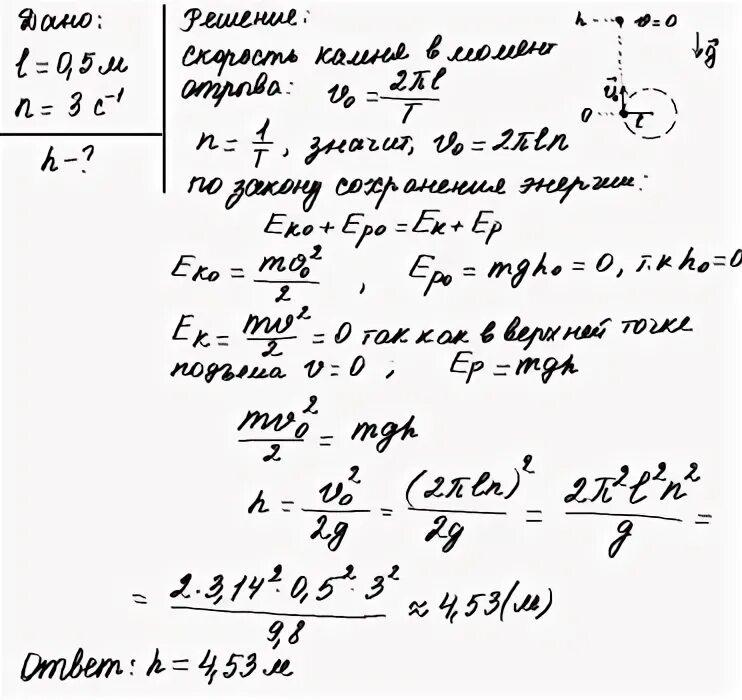 Дано:
l = 0,5 м
n = 3 с⁻¹
h – ?
Решение:
скорость камня в момент
отрыва: v₀ = 2πl/T
n = 1/T, значит, v₀ = 2πln
по закону сохранения энергии:
Eк₀ + Eр₀ = Eк + Eр
Eк₀ = mv₀²/2, Eр₀ = mgh₀ = 0, т.к h₀ = 0
Eк = mv²/2 = 0 так как в верхней точке
подъема v = 0, Eр = mgh
mv₀²/2 = mgh
h = v₀²/2g = (2πln)²/2g = 2π²l²n²/g =
= 2·3,14²·0,5²·3²/9,8 ≈ 4,53 (м)
Ответ: h = 4,53 м
h v = 0
g⃗
v⃗₀
0 l